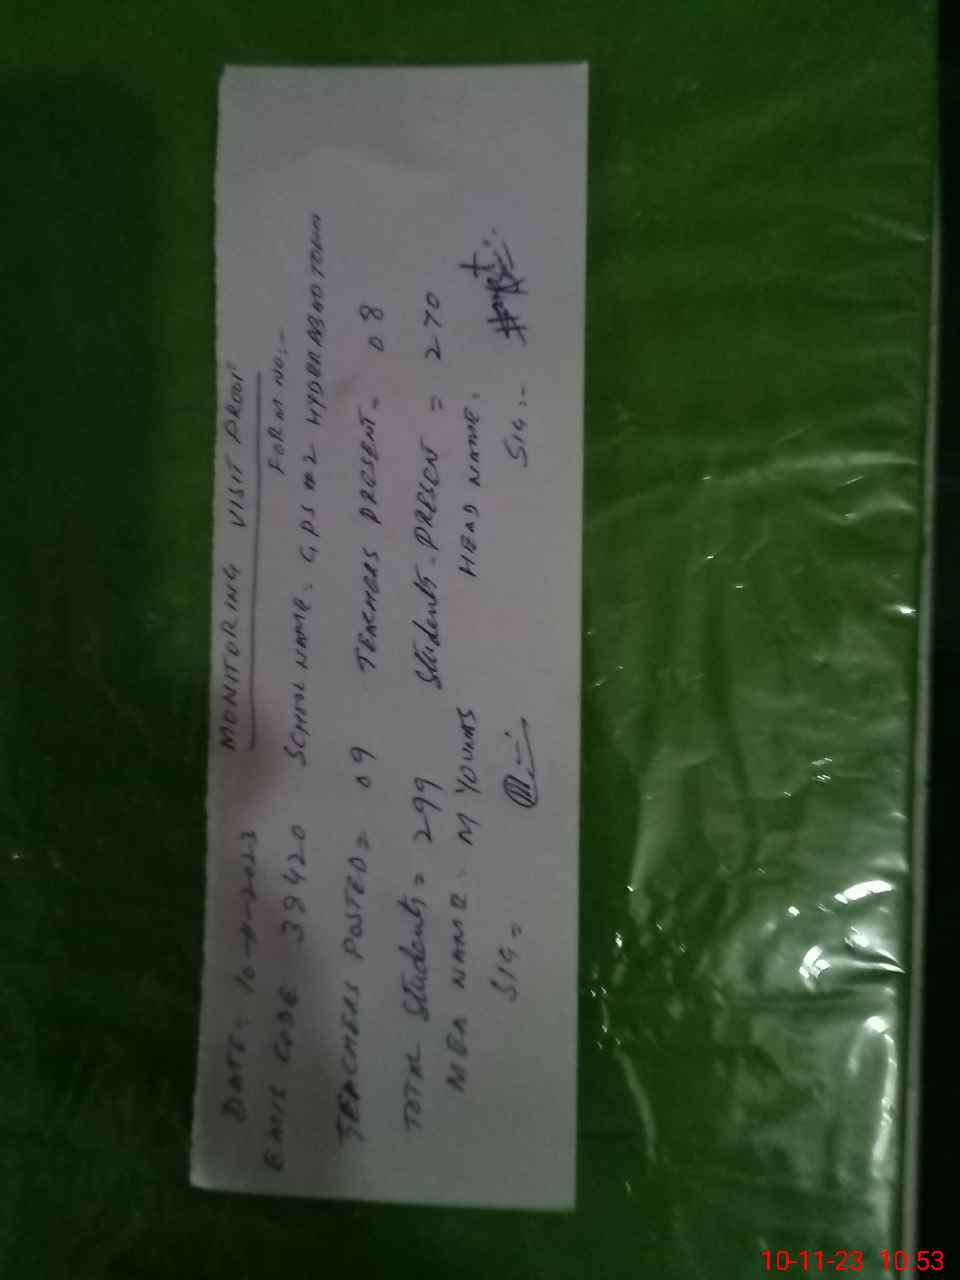 MONITORING VISIT PROOF
DATE- 10-11-2023 FORM NO:-
EMIS CODE 39420 SCHOOL NAME- GPS no2 HYDERABAD TOWN
TEACHERS POSTED= 09 TEACHERS PRESENT- 08
TOTAL Students= 299 Students-PRESENT = 270
MEA NAME- M YOUNAS HEAD NAME.
SIG= SIG:-
10-11-23 10.53